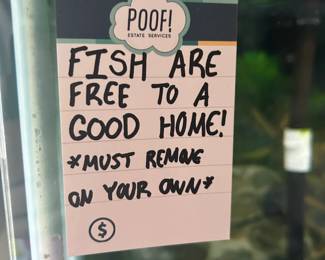 POOF!
ESTATE SERVICES
FISH ARE
FREE TO A
GOOD HOME!
*MUST REMOVE
ON YOUR OWN*
$